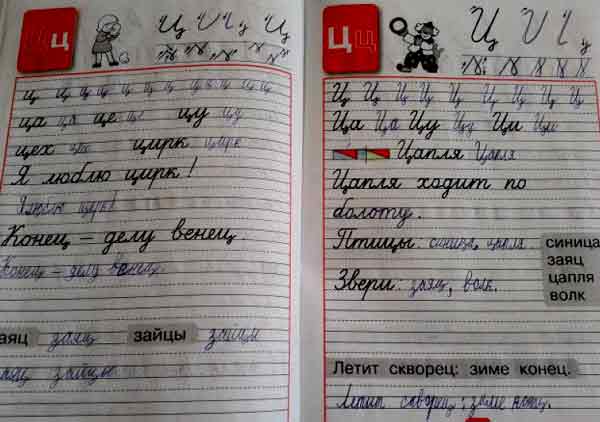 Ц ц
Ц Ц
ц ц ц ц ц ц ц ц ц ц
ца ца це це цу цу
цех цех цирк цирк
Я люблю цирк!
Я люблю цирк!
Конец – делу венец.
Конец – делу венец.
аяц заяц зайцы зайцы
аяц зайцы
Ц ц
Ц
Ц Ц Ц Ц Ц Ц Ц Ц Ц
Ца Ца Цу Цу Ци Ци
Цапля Цапля
Цапля ходит по
болоту.
Птицы: синица, цапля.
Звери: заяц, волк.
синица
заяц
цапля
волк
Летит скворец: зиме конец.
Летит скворец: зиме конец.